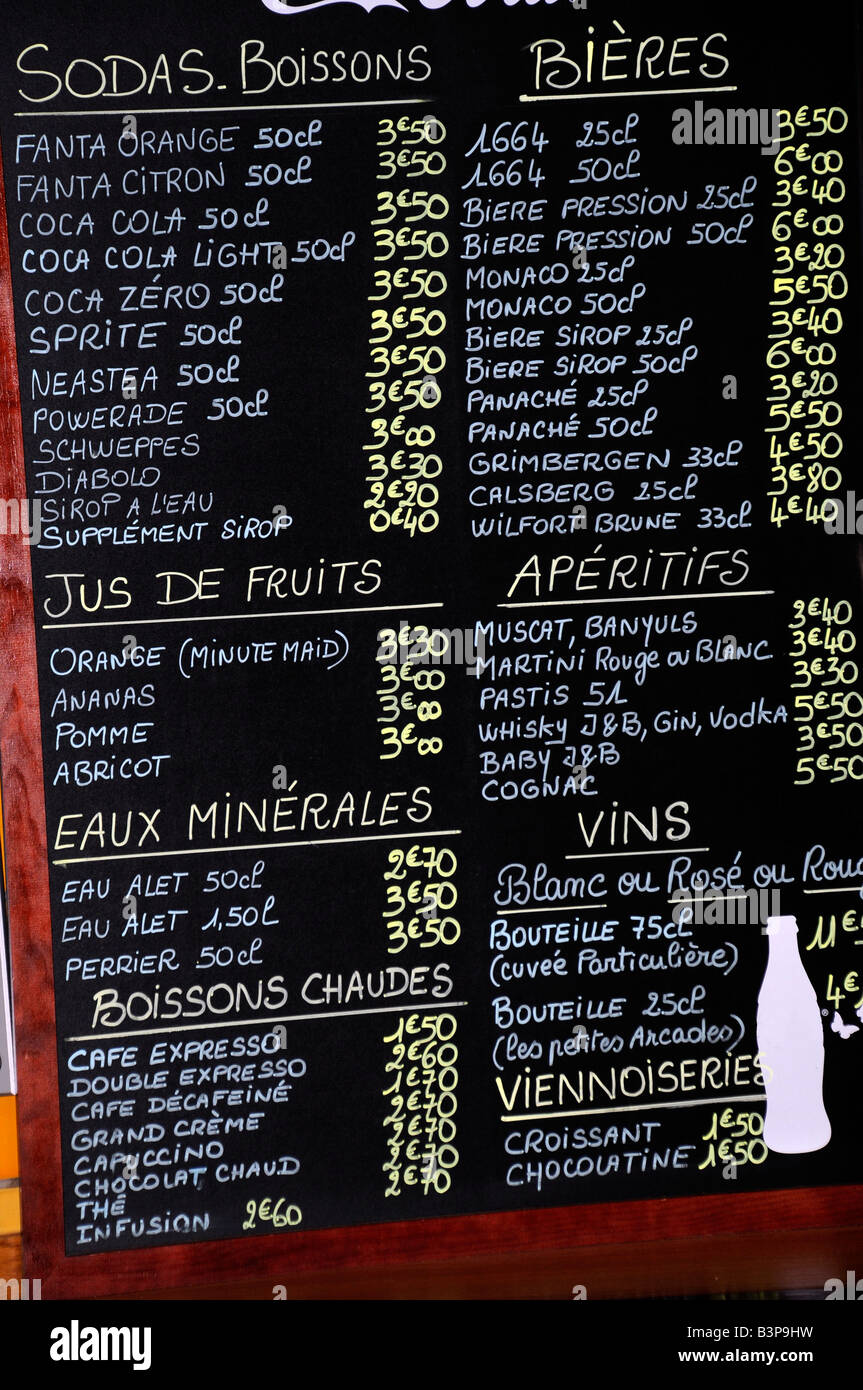 SODAS_BOISSONS
FANTA ORANGE 50cl 3€50
FANTA CITRON 50cl 3€50
COCA COLA 50cl 3€50
COCA COLA LIGHT 50cl 3€50
COCA ZÉRO 50cl 3€50
SPRITE 50cl 3€50
NEASTEA 50cl 3€50
POWERADE 50cl 3€50
SCHWEPPES 3€00
DIABOLO 3€30
SIROP A L'EAU 2€20
SUPPLÉMENT SIROP 0€40
JUS DE FRUITS
ORANGE (MINUTE MAID) 3€30
ANANAS 3€00
POMME 3€00
ABRICOT 3€00
EAUX MINÉRALES
EAU ALET 50cl 2€70
EAU ALET 1,50l 3€50
PERRIER 50cl 3€50
BOISSONS CHAUDES
CAFE EXPRESSO 1€50
DOUBLE EXPRESSO 2€60
CAFE DÉCAFEINÉ 1€70
GRAND CRÈME 2€70
CAPUCCINO 2€70
CHOCOLAT CHAUD 2€70
THÉ 2€70
INFUSION 2€60
BIÈRES
1664 25cl 3€50
1664 50cl 6€00
BIERE PRESSION 25cl 3€40
BIERE PRESSION 50cl 6€00
MONACO 25cl 3€20
MONACO 50cl 5€50
BIERE SIROP 25cl 3€40
BIERE SIROP 50cl 6€00
PANACHÉ 25cl 3€20
PANACHÉ 50cl 5€50
GRIMBERGEN 33cl 4€50
CALSBERG 25cl 3€80
WILFORT BRUNE 33cl 4€40
APÉRITIFS
MUSCAT, BANYULS 3€40
MARTINI Rouge ou BLANC 3€40
PASTIS 51 3€30
WHISKY J&B, GIN, VODKA 5€50
BABY J&B 3€50
COGNAC 5€50
VINS
Blanc ou Rosé ou
BOUTEILLE 75cl 11€
(cuveé Particulière)
BOUTEILLE 25cl 4€
(les petites Arcades)
VIENNOISERIES
CROISSANT 1€50
CHOCOLATINE 1€50
alamy
Image ID: B3P9HW
www.alamy.com